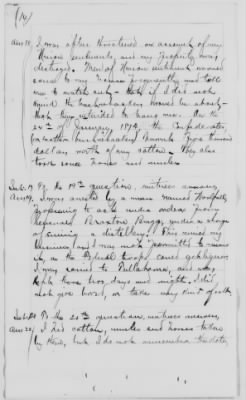 (14)
Ans 18. I was often threatened on account of my
Union sentiments and my property was
destroyed. Men of Union sentiment would
come to my house frequently and tell
me to watch out - that if I did not
the bushwhackers would be about -
that they intended to hang me. On the
24th of January, 1864, the Confederates,
or rather bushwhackers, burned five thousand
dollars worth of my cotton. They also
took some horses and mules.
Int. 19 To the 19th question, witness answers
Ans 19. I was arrested by a man named
to act under orders from
General Braxton Bragg, under a charge
of running a distillery. This ruined my
business, and I was not permitted to
as the Federal troops
I was carried to Tullahoma, and was
kept there two days and night. I did
not give bond, or take any kind of oath.
Int. 20 To the 20th question, witness answers,
Ans 20. I had cotton, mules and horses taken
by them, but I do not remember the dates,